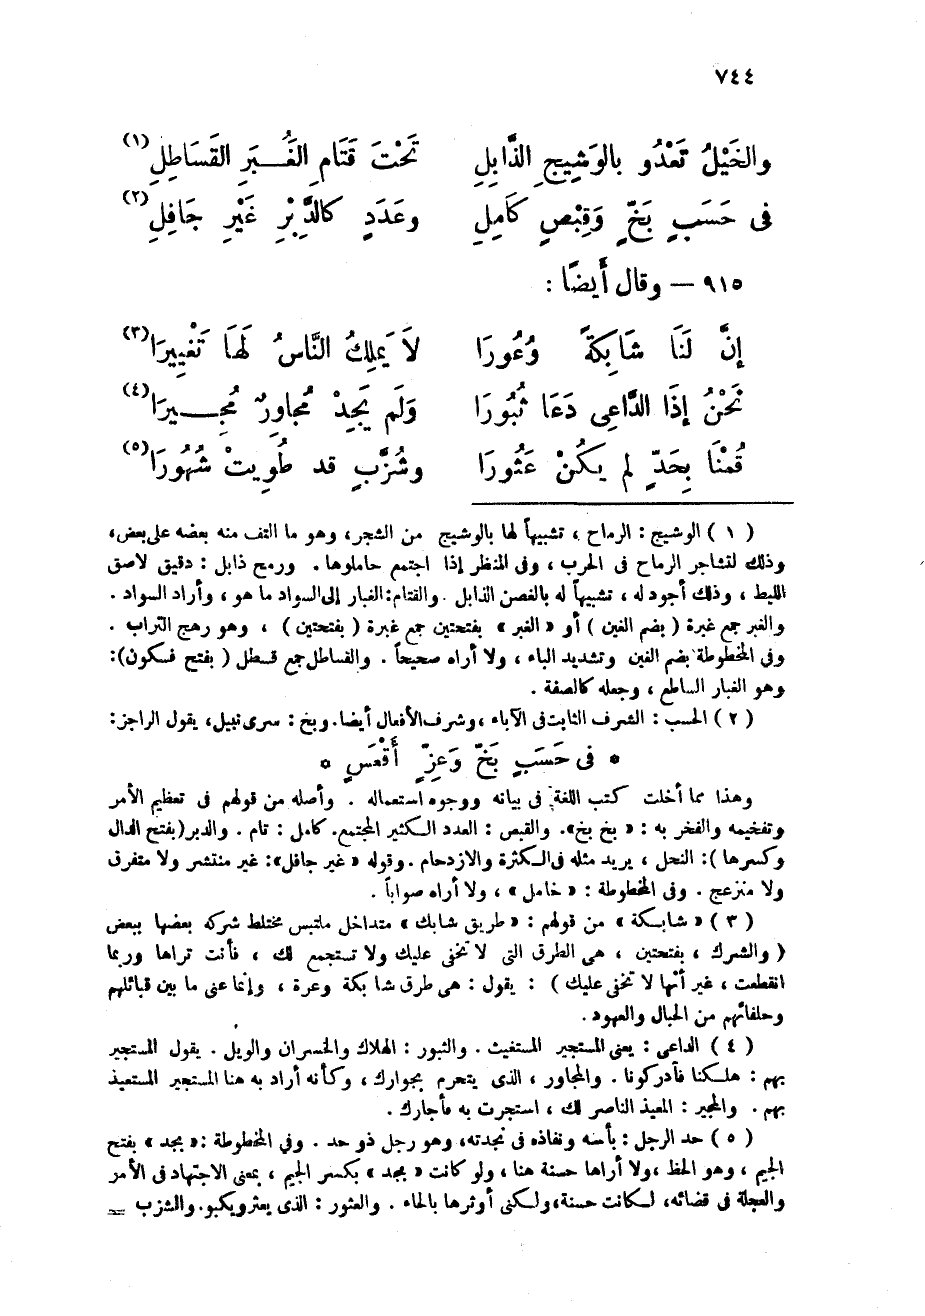 ٧٤٤
والخَيْلُ تَعْدُو بالوَشِيجِ الذَّابِلِ تَحْتَ قَتَامِ الغُـــبَرِ القَسَاطِلِ (١)
فى حَسَبٍ بَخٍّ وَقِبْصٍ كَامِلِ وعَدَدٍ كالدِّبْرِ غَيْرِ جَافِلِ (٢)
٩١٥ — وقال أَيضًا :
إنَّ لَنَا شَابِكَةً وُعُورَا لاَ يَملِكُ النَّاسُ لَهَا تَغْيِيرَا (٣)
نَحْنُ إذَا الدَّاعِى دَعَا ثُبُورَا وَلَم يَجِدْ مُجاوِرٌ مُجِـــيرَا (٤)
قُمْنَا بِحَدٍّ لم يكُنْ عَثُورَا وشُزَّبٍ قد طُوِيتْ شُهُورَا (٥)
( ١ ) الوشيج : الرماح ، تشبيهاً لها بالوشيج من الشجر، وهو ما التف منه بعضه على بعض،
وذلك لتشاجر الرماح فى الحرب ، وفى المنظر إذا اجتمع حاملوها . ورمح ذابل : دقيق لاصق
الليط ، وذلك أجود له ، تشبيهاً له بالغصن الذابل . والقتام: الغبار إلى السواد ما هو ، وأراد السواد .
والغبر جمع غبرة ( بضم الغين ) أو « الغبر » بفتحتين جمع غبرة ( بفتحتين ) ، وهو رهج التراب .
وفى المخطوطة بضم الغين وتشديد الباء ، ولا أراه صحيحاً . والقساطل جمع قسطل ( بفتح فسكون):
وهو الغبار الساطع ، وجعله كالصفة .
( ٢ ) الحسب : الشرف الثابت فى الآباء ، وشرف الأفعال أيضا. وبخ : سرى نبيل، يقول الراجز:
* فى حَسَبٍ بَخٍّ وَعِزٍّ أَقْعَسِ *
وهذا مما أخلت كتب اللغة فى بيانه ووجوه استعماله . وأصله من قولهم فى تعظيم الأمر
وتفخيمه والفخر به : « بخ بخ». والقبص : العدد الكثير المجتمع. كامل : تام . والدبر(بفتح الدال
وكسرها ): النحل ، يريد مثله فى الكثرة والازدحام . وقوله «غير جافل»: غير منتشر ولا متفرق
ولا منزعج . وفى المخطوطة : « خامل » ، ولا أراه صواباً .
( ٣ ) « شابكة » من قولهم : « طريق شابك » متداخل ملتبس مختلط شركه بعضها ببعض
( والشرك ، بفتحتين ، هى الطرق التى لا تخفى عليك ولا تستجمع لك ، فأنت تراها وربما
انقطعت ، غير أنها لا تخفى عليك ) : يقول : هى طرق شابكة وعرة ، وإنما عنى ما بين قبائلهم
وحلفائهم من الحبال والعهود .
( ٤ ) الداعى : يعنى المستجير المستغيث . والثبور : الهلاك والخسران والويل . يقول المستجير
بهم : هلكنا فأدركونا . والمجاور ، الذى يتحرم بجوارك ، وكأنه أراد به هنا المستجير المستعيذ
بهم . والمجير : المعيذ الناصر لك ، استجرت به فأجارك .
( ٥ ) حد الرجل : بأسه ونفاذه فى نجدته، وهو رجل ذو حد . وفي المخطوطة :« بجد » بفتح
الجيم ، وهو الحظ ، ولا أراها حسنة هنا ، ولو كانت « بجد » بكسر الجيم ، بمعنى الاجتهاد فى الأمر
والعجلة فى قضائه، لكانت حسنة، ولكنى أوثرها بالحاء . والعثور : الذى يعثر ويكبو. والشزب =